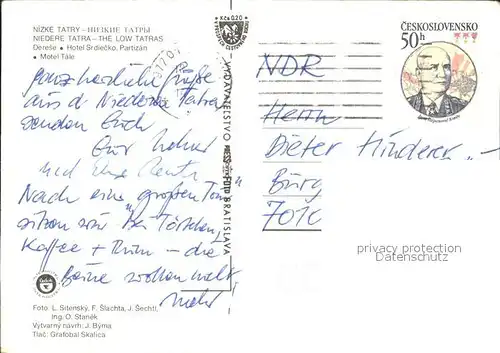 NÍZKE TATRY – НИЗКИЕ ТАТРЫ
NIEDERE TATRA – THE LOW TATRAS
Dereše ● Hotel Srdiečko, Partizán
● Motel Tále
ganz herzliche Grüße
aus d. Niederen Tatra
senden Euch
Eur
und
Nach eine großen Tour
sitzen wir bei Törtchen,
Kaffee + Rum – die
Beine wollen nicht
mehr
Foto: L. Sitenský, F. Šlachta, J. Šechtl,
Ing. O. Staněk
Výtvarný návrh: J. Býma
Tlač: Grafobal Skalica
Kčs 0,20
VYDAVATEĽSTVO PRESSFOTO BRATISLAVA
ČESKOSLOVENSKO
50 h
NDR
Herrn
Dieter
Burg
privacy protection
Datenschutz